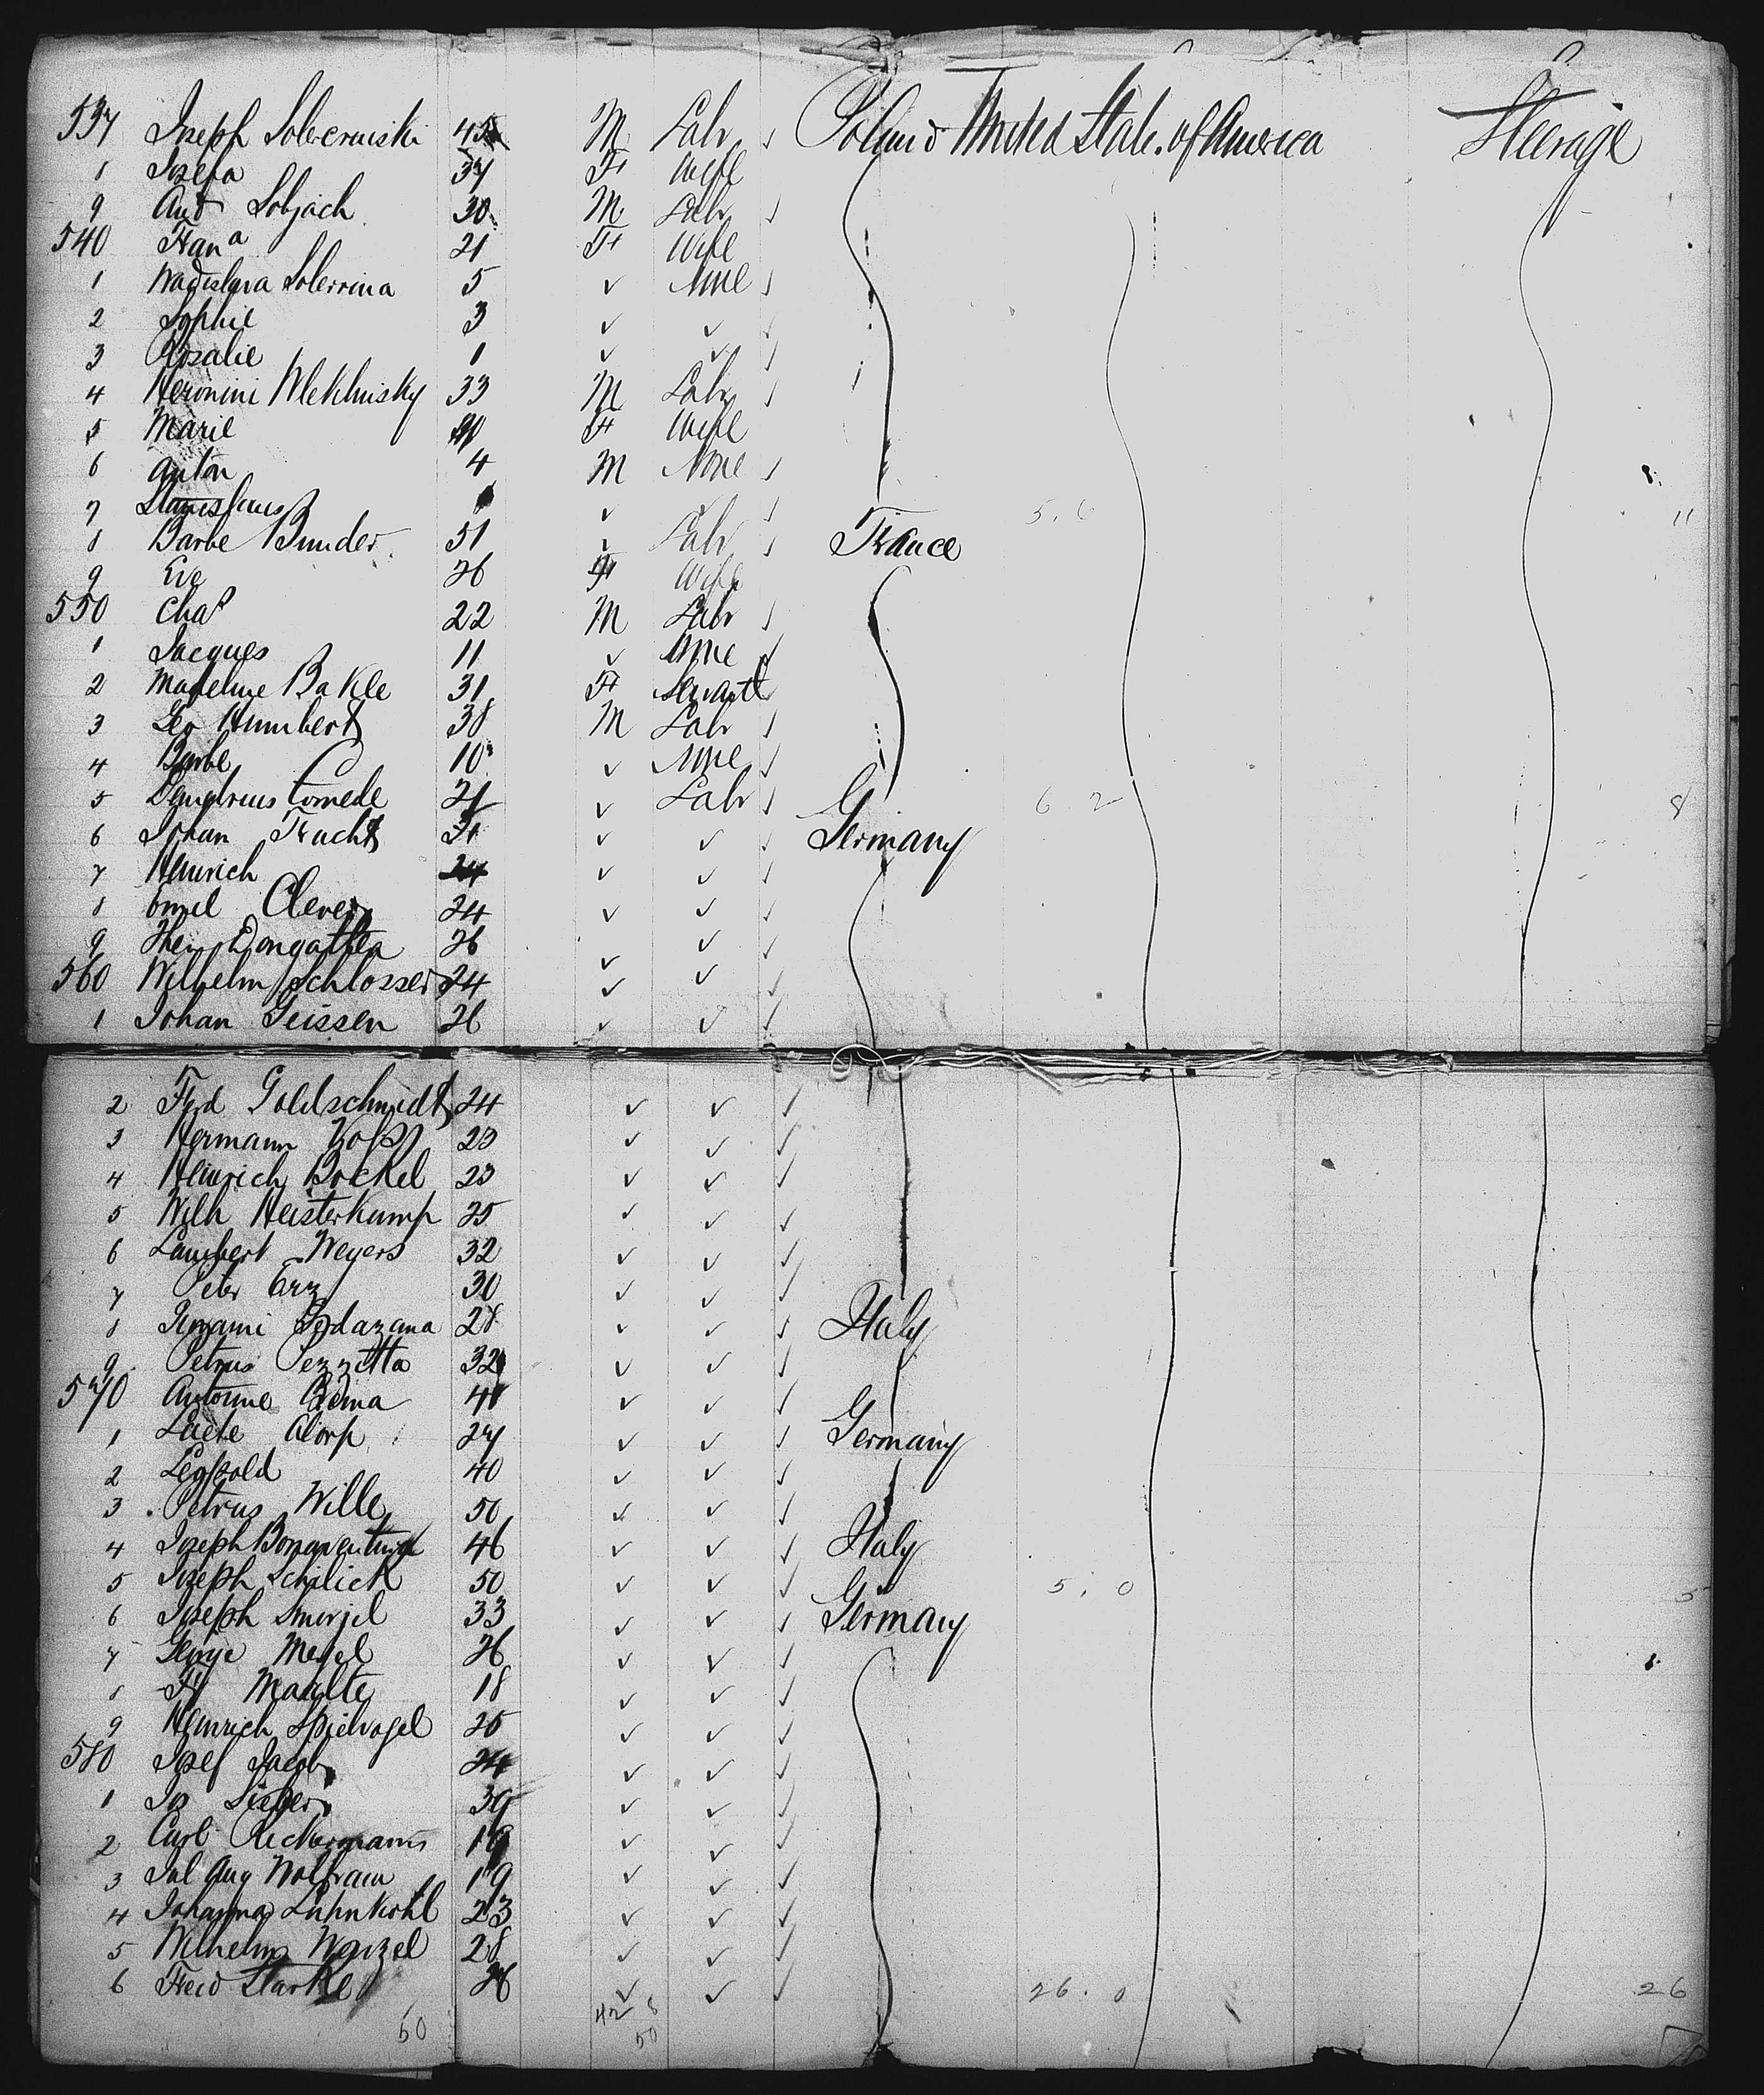 537 Joseph 45 M Labr ✓ Poland United State. of America Steerage
8 Josefa 37 F Wife
9 And Sobjach 30 M Labr ✓
540 Fran a 21 F Wife
1 Wadislava 5 ✓ None ✓
2 Sophie 3 ✓ ✓ ✓
3 Rosalie 1 ✓ ✓ ✓
4 33 M Labr ✓
5 Marie F Wife
6 Anton 4 M None ✓
7 Stanislaus ✓ ✓ ✓ 5. 6 11
8 Barbe Bunder 51 ✓ Labr ✓ France
9 Eve 26 F Wife
550 Chas 22 M Labr ✓
1 Jacques 11 ✓ None ✓
2 Madeline Bakle 31 F Servant ✓
3 Geo Humbert 38 M Labr ✓
4 Barbe 10 ✓ None ✓
5 Comede 21 ✓ Labr ✓ 6 2 8
6 Johan Fracht 31 ✓ ✓ ✓ Germany
7 Heinrich 24 ✓ ✓ ✓
8 Emil Clever 24 ✓ ✓ ✓
9 26 ✓ ✓ ✓
560 Wilhelm Schlosser 24 ✓ ✓ ✓
1 Johan Geissen 26 ✓ ✓ ✓
2 Ferd Goldschmidt 24 ✓ ✓ ✓
3 Hermann 23 ✓ ✓ ✓
4 Heinrich Bockel 23 ✓ ✓ ✓
5 Wilh Heisterkamp 25 ✓ ✓ ✓
6 Lambert Weyers 32 ✓ ✓ ✓
7 Peter Erz 30 ✓ ✓ ✓
8 28 ✓ ✓ ✓ Italy
9 Petrus Pezzetta 32 ✓ ✓ ✓
570 Antoine ✓ ✓ ✓
1 27 ✓ ✓ ✓ Germany
2 Leopold 40 ✓ ✓ ✓
3 Petrus Wille 50 ✓ ✓ ✓
4 Joseph Bonaventura 46 ✓ ✓ ✓ Italy
5 Joseph Schilick 50 ✓ ✓ ✓ 5. 0 5
6 Joseph Smerjil 33 ✓ ✓ ✓ Germany
7 George 26 ✓ ✓ ✓
8 18 ✓ ✓ ✓
9 Heinrich Spielvogel 25 ✓ ✓ ✓
580 Josef Jacob 24 ✓ ✓ ✓
1 Jos Sieber 39 ✓ ✓ ✓
2 Carl Reckermann ✓ ✓ ✓
3 Jul Aug Wolfram 19 ✓ ✓ ✓
4 Johanna 23 ✓ ✓ ✓
5 Wilhelm 28 ✓ ✓ ✓
6 Starke 26 ✓ ✓ ✓ 26. 0 26
50 42 8
50